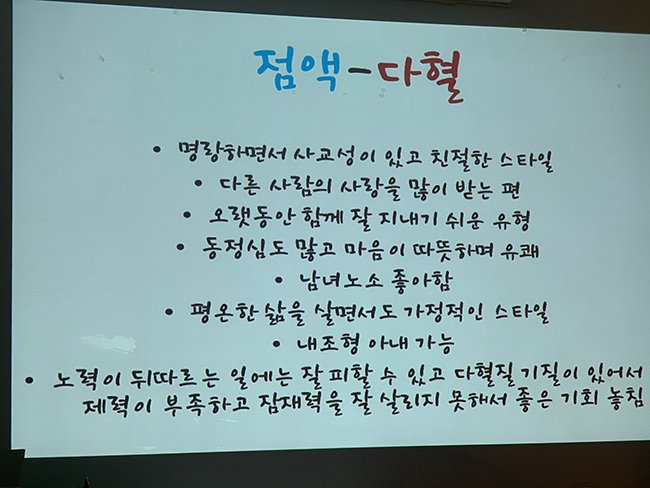 점액-다혈
• 명랑하면서 사교성이 있고 친절한 스타일
• 다른 사람의 사랑을 많이 받는 편
• 오랫동안 함께 잘 지내기 쉬운 유형
• 동정심도 많고 마음이 따뜻하며 유쾌
• 남녀노소 좋아함
• 평온한 삶을 살면서도 가정적인 스타일
• 내조형 아내 가능
• 노력이 뒤따르는 일에는 잘 피할 수 있고 다혈질 기질이 있어서
제력이 부족하고 잠재력을 잘 살리지 못해서 좋은 기회 놓침